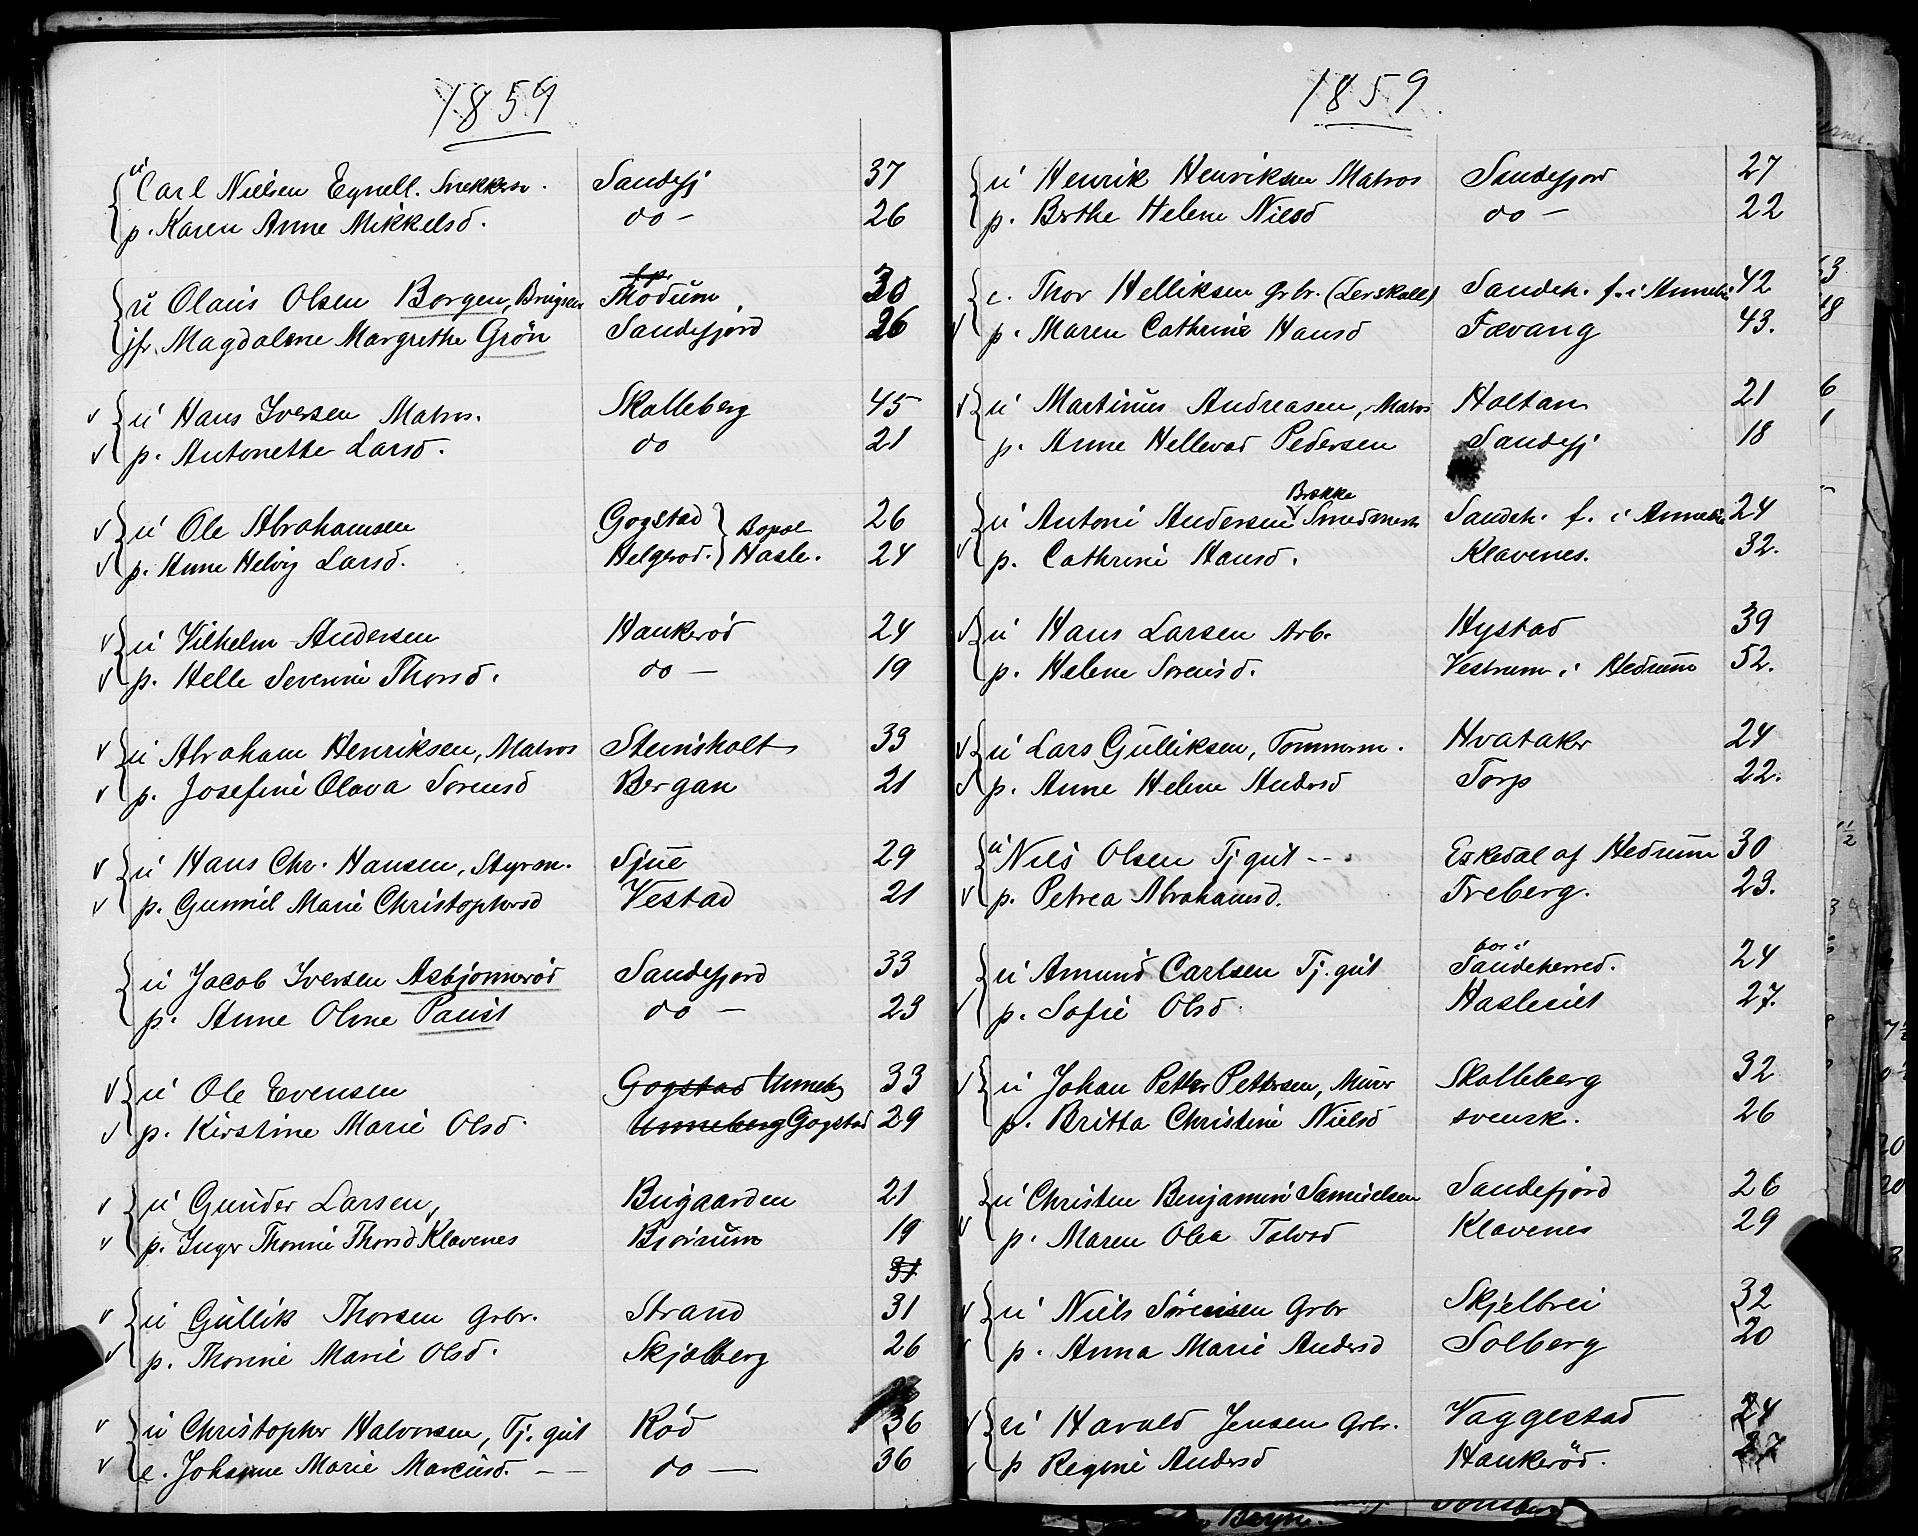 1859
u Carl Nielsen Egnell. Snekkersv. Sandefj 37
p. Karen Anne Mikkelsd. do - 26
u Olaus Olsen Borgen, Brugseier Modum 30
jfr. Magdalene Margrethe Grön Sandefjord 26
v u Hans Iversen Matros. Skolleberg 45
v p. Antonette Larsd. do 21
v u Ole Abrahamsen Gogstad } Bopæl 26
v p. Anne Helvig Larsd. Helgerod. } Hasle. 24
v u Vilhelm Andersen Haukerød 24
v p. Helle Severine Thorsd. do - 19
v u Abraham Henriksen, Matros Stensholt 33
v p. Josefine Olava Sorensd Bergan 21
v u Hans Chr. Hansen, Styrm. Sjue 29
v p. Gunnil Marie Christophersd Vestad 21
u Jacob Iversen Asbjonnerød Sandefjord 33
p. Anne Oline Paust do - 23
v u Ole Evensen Gogstad Unneb 33
v p. Kirstine Marie Olsd. Unneberg Gogstad 29
v u Gunder Larsen, Bugaarden 21
v p. Inger Thorine Thorsd Klavenes Bjørnum 19
31
v u Gullik Thorsen Grbr. Strand 31
v p. Thorine Marie Olsd. Skjølberg 26
v u Christopher Halvorsen, Tj. gut Rød 36
v e. Johanne Marie Marcusd. - - do - 36
1859.
u Henrik Henriksen Matros Sandefjord 27
p. Berthe Helene Nilsd do - 22
e. Thor Helliksen Grbr. (Lerskall) Sandeh. f. i Annebu 42
v p. Maren Cathrine Hansd Fævang 43.
v u Martinus Andreasen, Matros Holtan 21
p. Anne Hellevad Pedersen Sandefj 18
Brekke
u Antoni Andersen v Smedmestr Sandeh. f. i Annebu 24
v p. Cathrine Hansd. Klavenes. 32.
v u Hans Larsen Arb. Hystad 39
p. Helene Sorensd. Vestrum i Hedrum 52.
v u Lars Gulliksen, Tommerm. Hvataker 24
v p. Anne Helene Andersd Torp 22.
u Niels Olsen Tj gut - - . Eskedal af Hedrum 30
v p. Petrea Abrahamsd. Freberg. 23.
bor i
u Amund Carlsen Tj. gut Sandeherred. 24
v p. Sofie Olsd. Hasleuet 27.
v u Johan Petter Pettersen, Murer Skolleberg 32
p. Britta Christine Nielsd svensk. 26
u Christen Benjamin Samuelsen Sandefjord 26
v p. Maren Olea Talvsd Klavenes 29
v u Niels Sörensen Grbr Skjelbrei 32
v p. Anna Marie Andersd Solberg 20
v u Harald Jensen Grbr. Vaggestad 24
p Regine Andersd Haukerød. 27